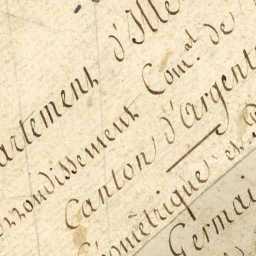 artement d'Ille
rrondissement Com.al de
Canton d'Argent
Géométrique et P
Germai